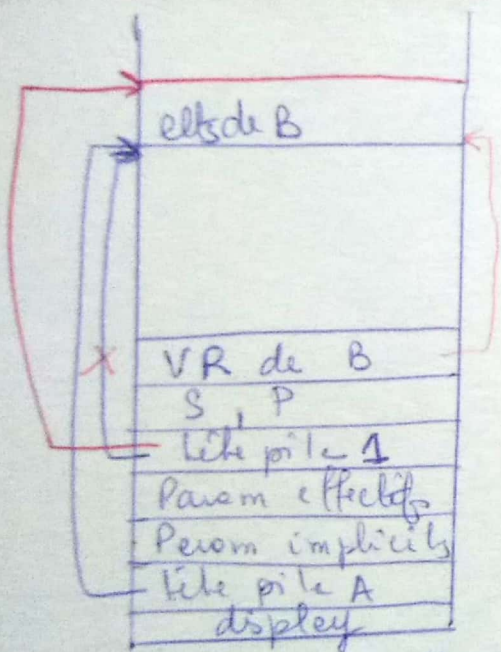 elts de B
VR de B
S, P
tête pile 1
Param effectifs
Param implicits
tête pile A
display